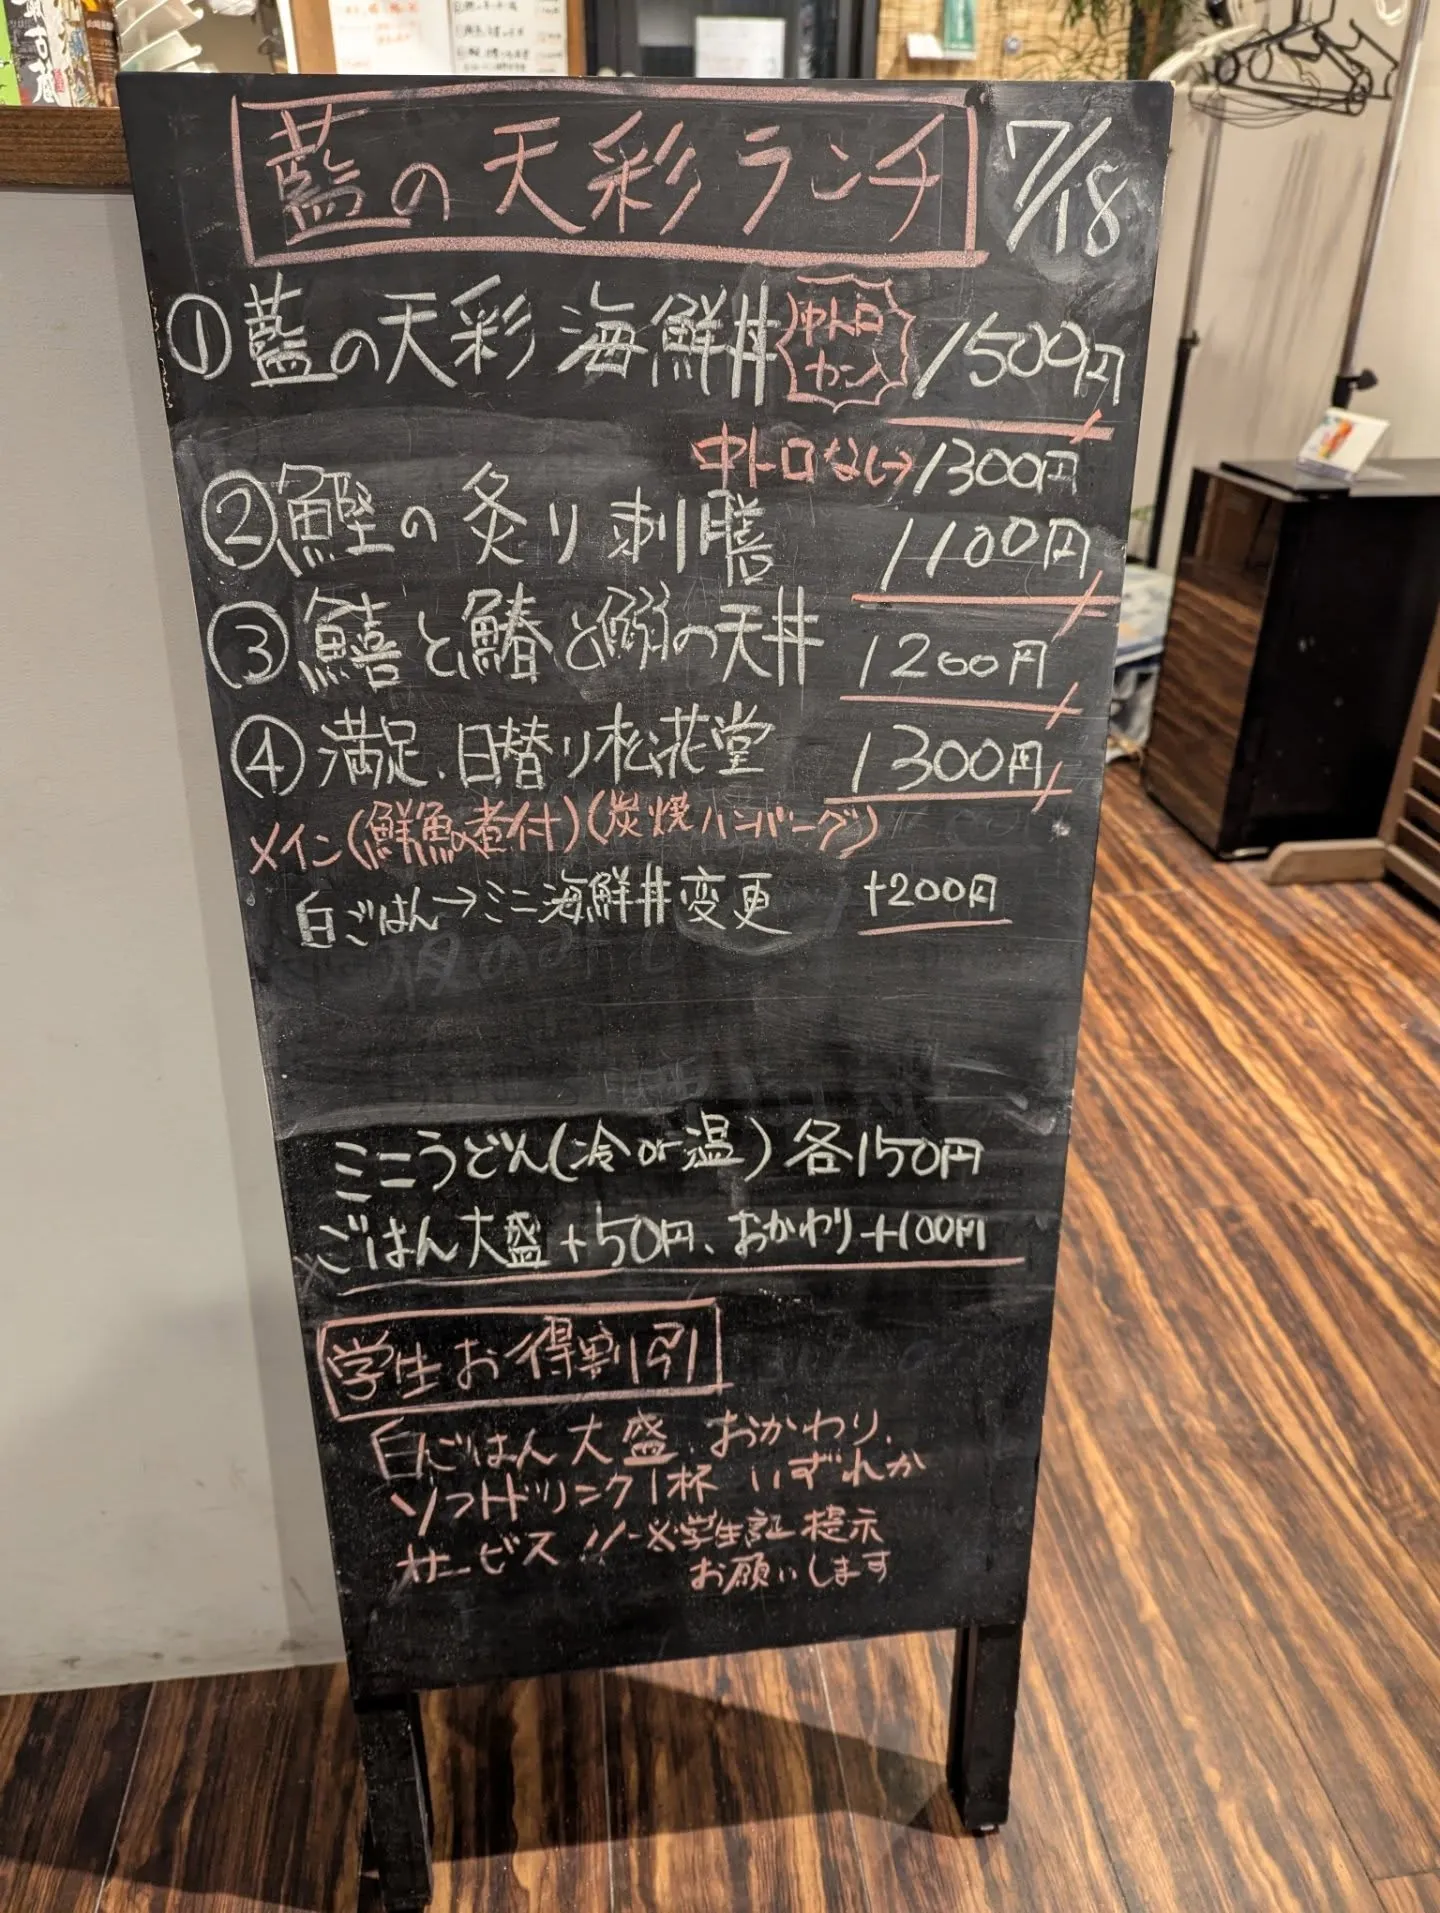 藍の天彩ランチ 7/18
①藍の天彩 海鮮丼 中トロ 1500円
中トロなし→1300円
②鰹の炙り刺膳 1100円
③鱚と鰆と鰯の天丼 1200円
④満足、日替り松花堂 1300円
メイン(鮮魚の煮付)(炭焼ハンバーグ)
白ごはん→ミニ海鮮丼変更 +200円
ミニうどん(冷or温)各150円
ごはん大盛+50円、おかわり+100円
学生お得割引
白ごはん大盛、おかわり、
ソフトドリンク1杯 いずれか
サービス!!※学生証提示
お願いします